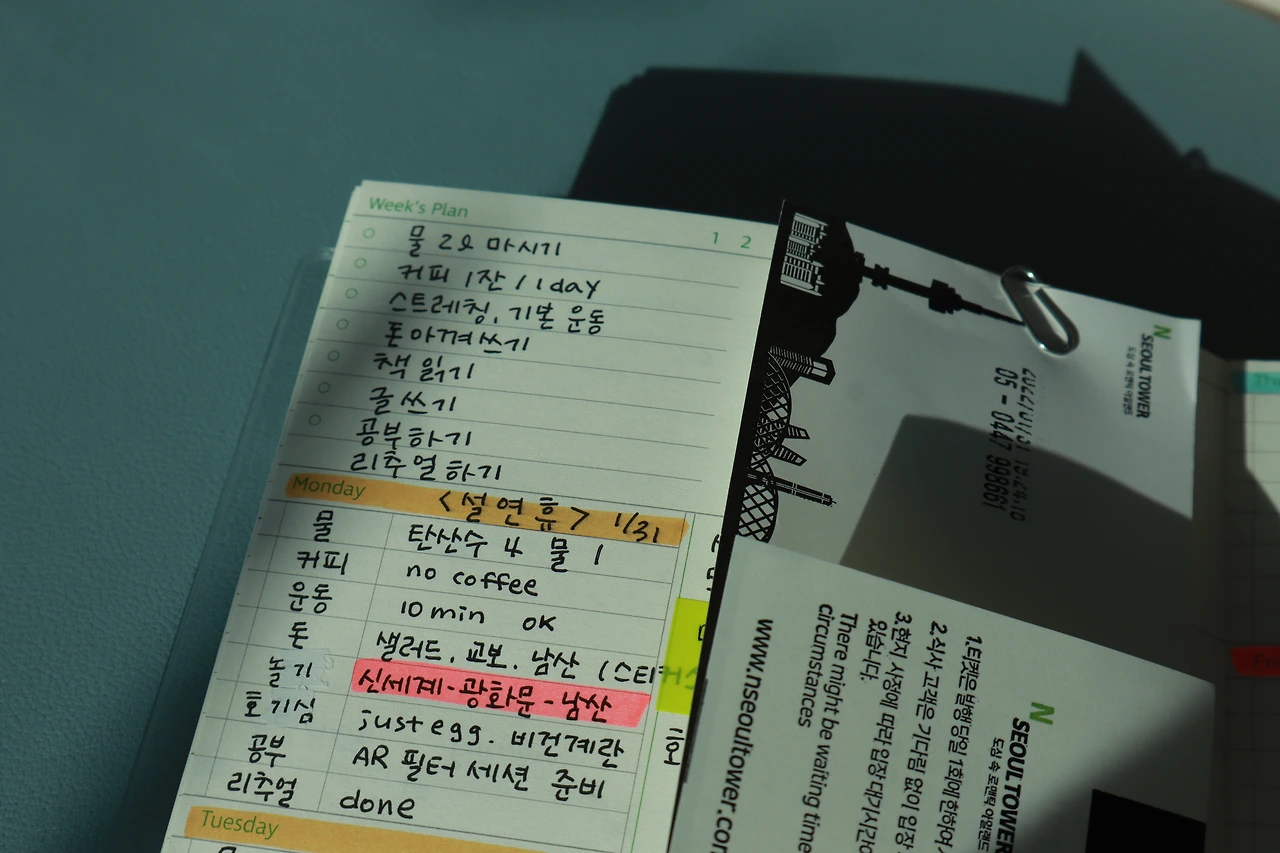 Week's Plan
1 2
물 2ℓ 마시기
커피 1잔 / 1day
스트레칭, 기본 운동
돈 아껴 쓰기
책 읽기
글 쓰기
공부하기
리추얼 하기
Monday <설 연휴> 1/31
물 탄산수 4 물 1
커피 no coffee
운동 10 min OK
돈 샐러드, 교보, 남산 (스티커
놀기 신세계-광화문-남산
호기심 just egg. 비건계란
공부 AR 필터 세션 준비
리추얼 done
Tuesday
N
SEOUL TOWER
도심 속 로맨틱 아일랜드
05 - 0447 998661
1.티켓은 발행 당일 1회에 한하여
2.식사 고객은 기다림 없이 입장
3.현지 사정에 따라 입장 대기시간이
있습니다.
There might be waiting time
circumstances
www.nseoultower.co
N
SEOUL TOWER
도심 속 로맨틱 아일랜드